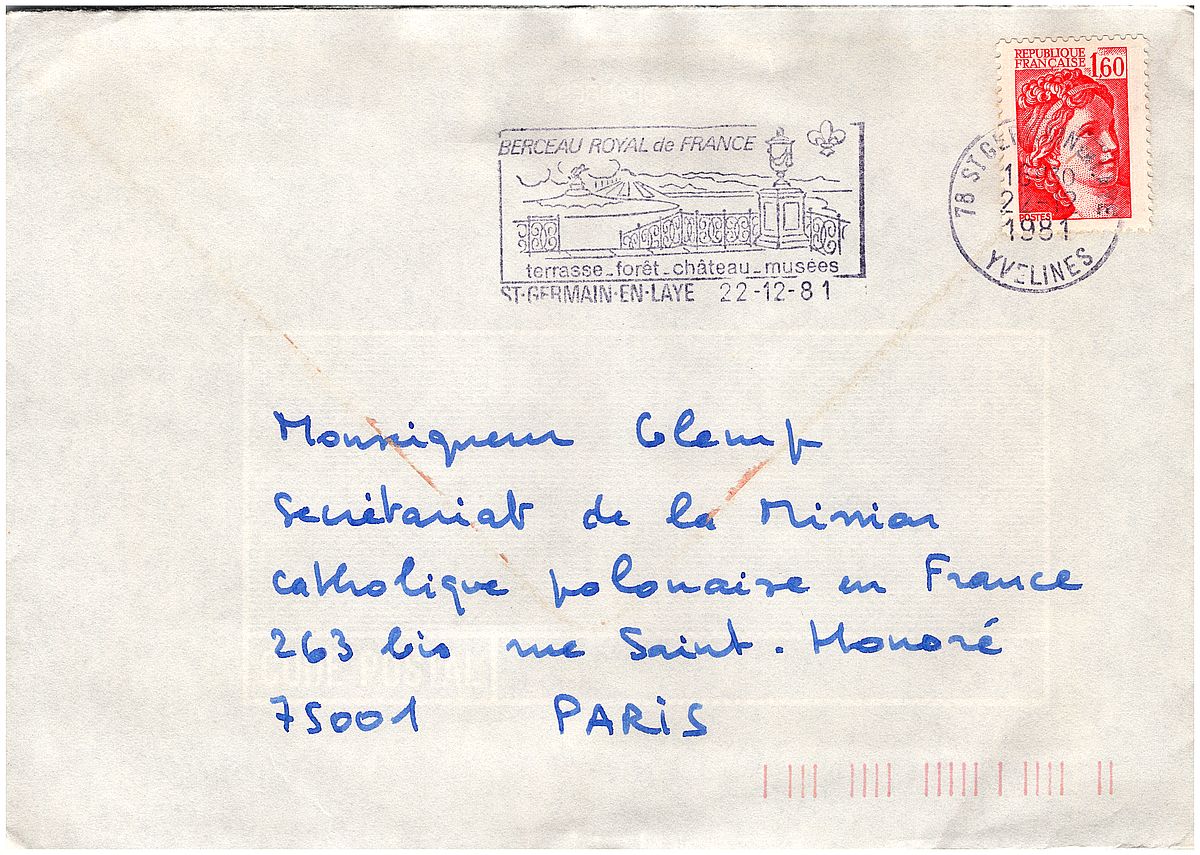 REPUBLIQUE
FRANÇAISE 1,60
POSTES
BERCEAU ROYAL de FRANCE
terrasse_forêt_château_musées
ST-GERMAIN-EN-LAYE 22-12-81
78 ST GERMAIN
1981
YVELINES
Monseigneur Glemp
Secrétariat de la Mission
catholique polonaise en France
263 bis rue Saint-Honoré
75001 PARIS
CODE POSTAL